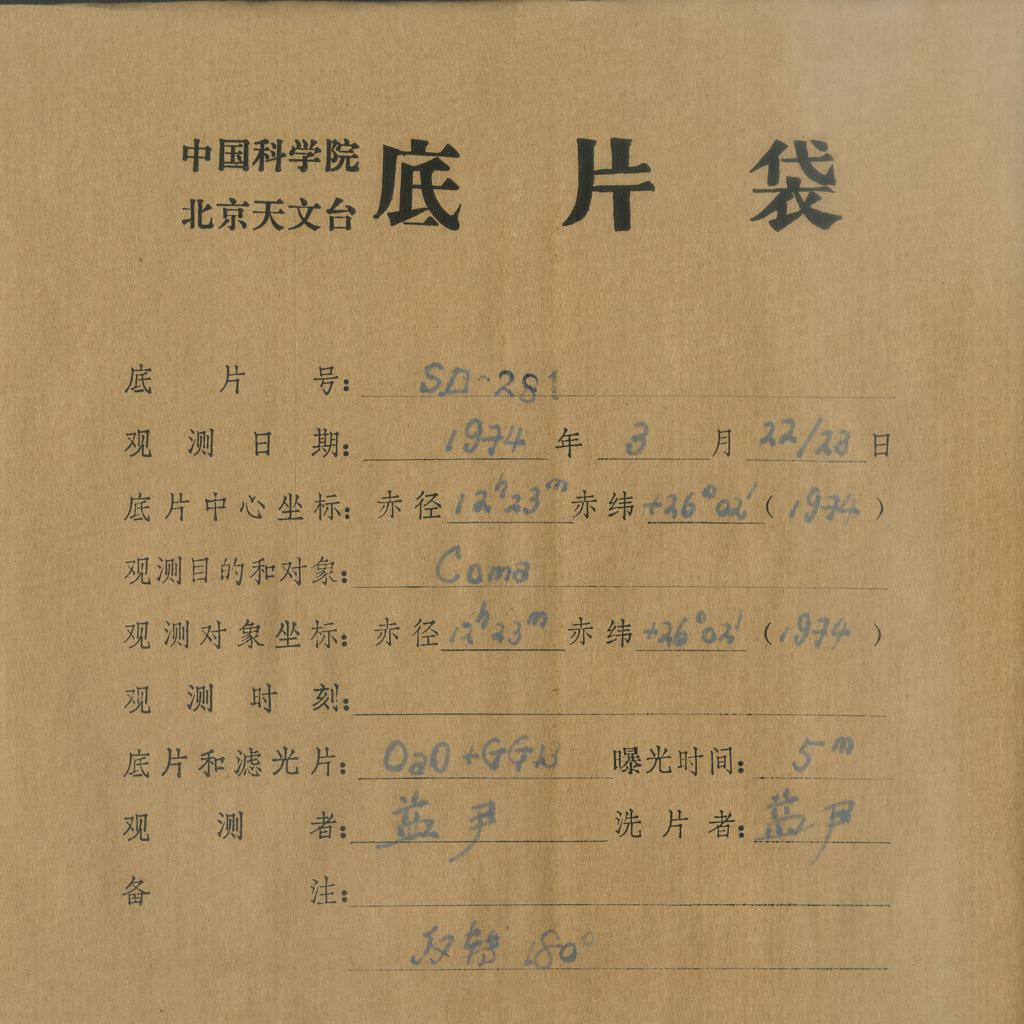 中国科学院
北京天文台
底片袋
底片号: SD-281
观测日期: 1974年 3 月 22/23 日
底片中心坐标: 赤径 12h23m 赤纬 +26°02′ (1974)
观测目的和对象: Coma
观测对象坐标: 赤径 12h23m 赤纬 +26°02′ (1974)
观测时刻:
底片和滤光片: OaO+GG13 曝光时间: 5m
观测者: 尹 洗片者: 尹
备注:
180°